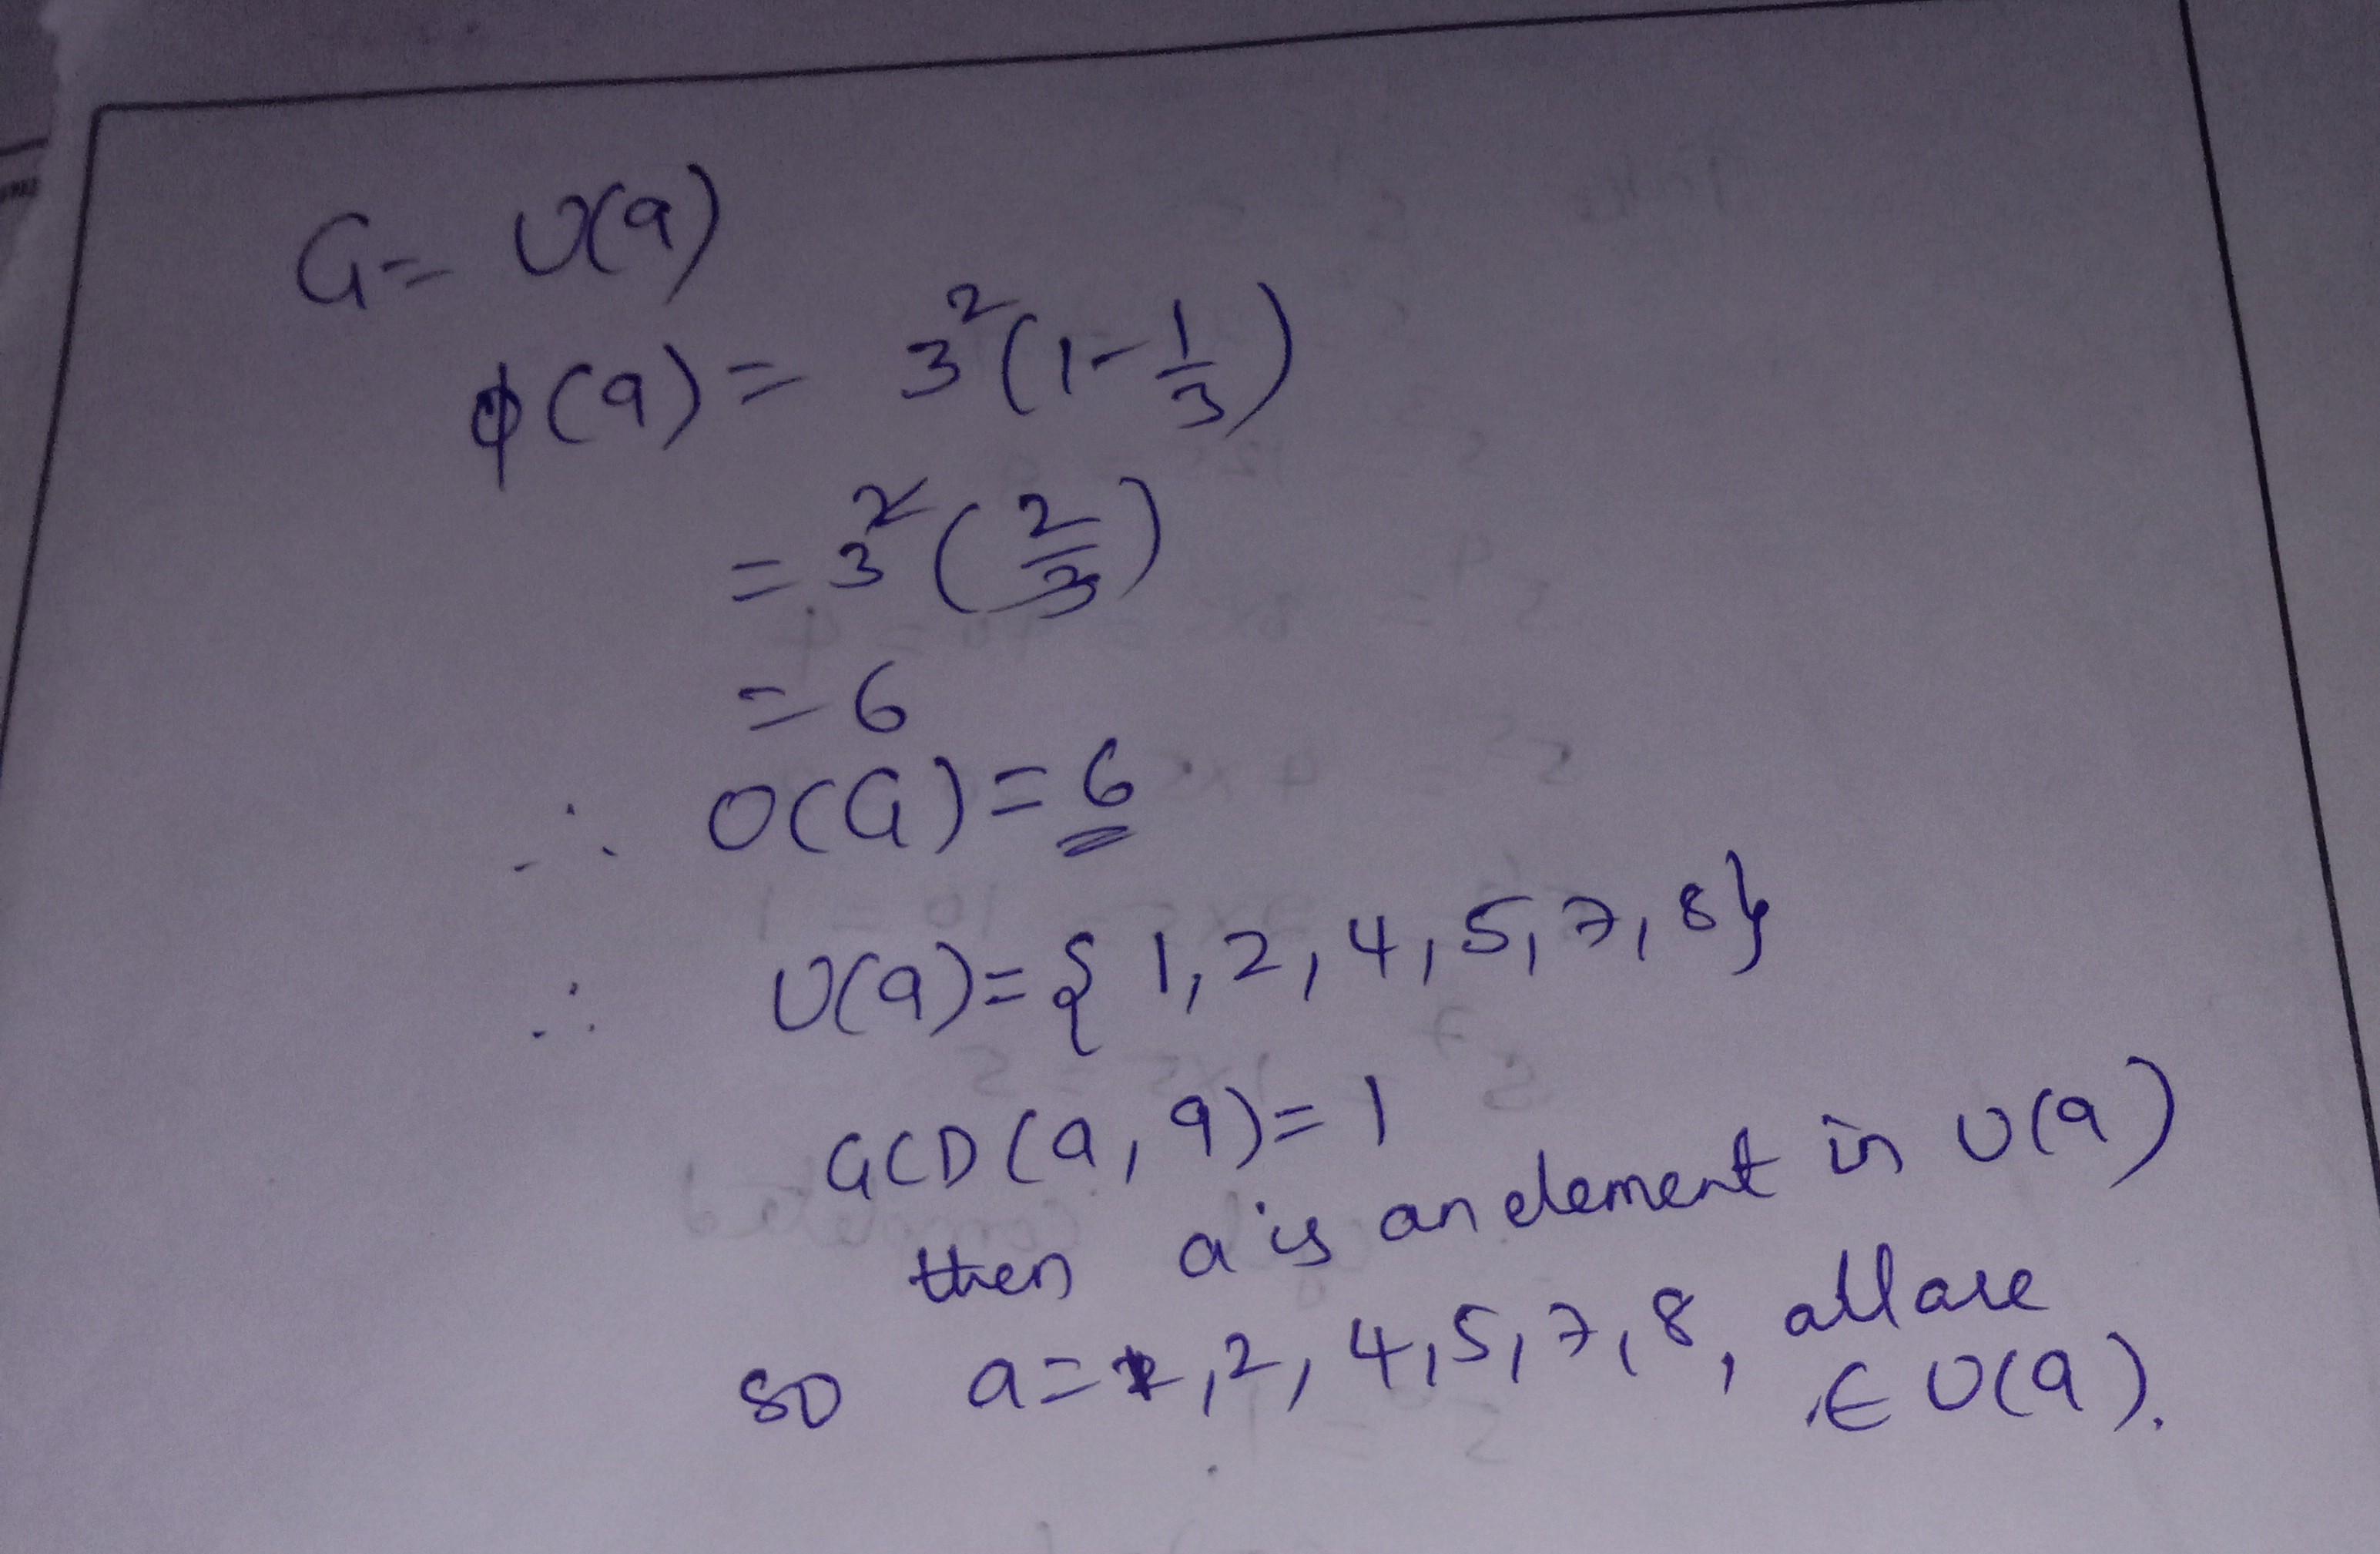 G = U(9)
φ(9) = 3²(1-1/3)
= 3²(2/3)
= 6
∴ O(G) = 6
∴ U(9) = { 1, 2, 4, 5, 7, 8}
GCD(a, 9) = 1
then a is an element in U(9)
so a = 1, 2, 4, 5, 7, 8, all are
∈ U(9).